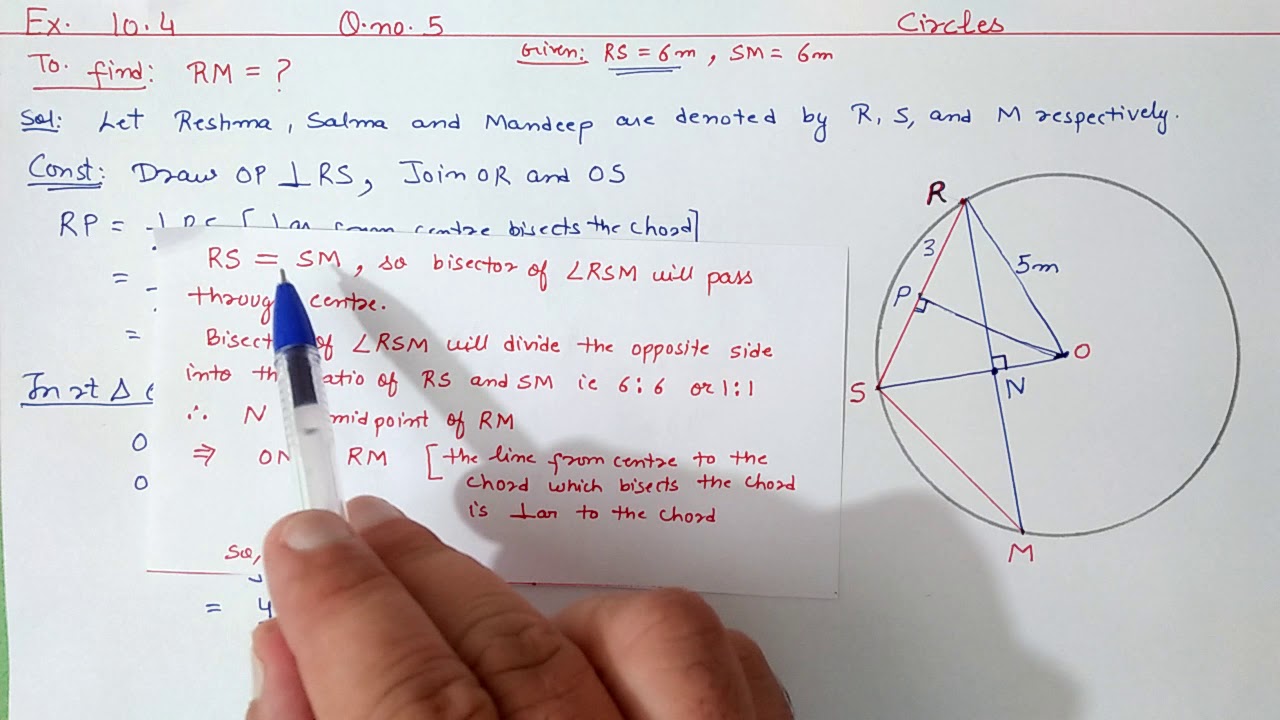 Ex. 10.4 Q.no. 5 Circles
Given: RS = 6m, SM = 6m
To find: RM = ?
Sol: Let Reshma, Salma and Mandeep are denoted by R, S, and M respectively.
Const: Draw OP ⊥ RS, Join OR and OS
RP = centre bisects the chord]
=
=
In rt Δ
O
O
= 4
RS = SM, so bisector of ∠RSM will pass
centre.
of ∠RSM will divide the opposite side
into of RS and SM ie 6:6 or 1:1
∴ N midpoint of RM
⇒ ON RM [the line from centre to the
chord which bisects the chord
is ⊥ar to the chord
So,
R
3
5m
P
O
N
S
M